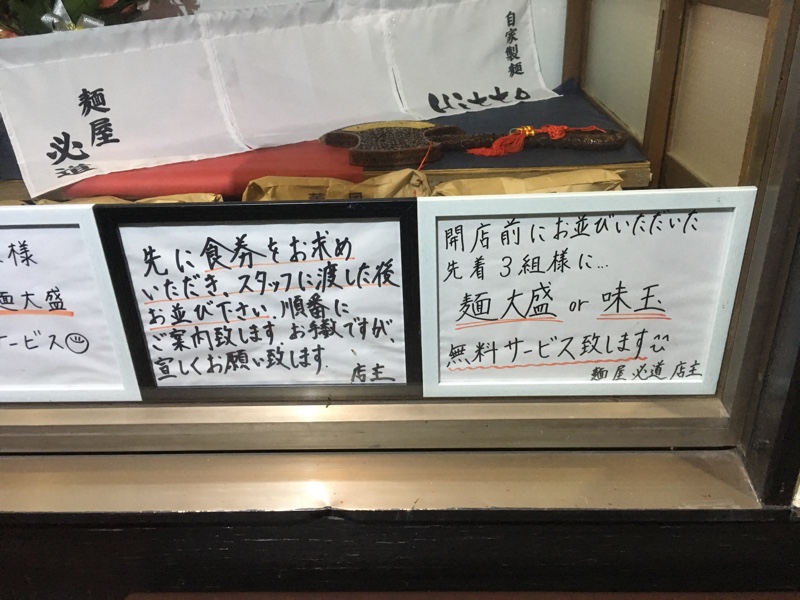 自家製麺
Hitto
麺屋
必道
様
麺大盛
サービス
先に食券をお求め
いただき、スタッフに渡した後
お並び下さい。順番に
ご案内致します。お手数ですが、
宜しくお願い致します。
店主
開店前にお並びいただいた
先着3組様に…
麺大盛 or 味玉
無料サービス致します
麺屋必道 店主